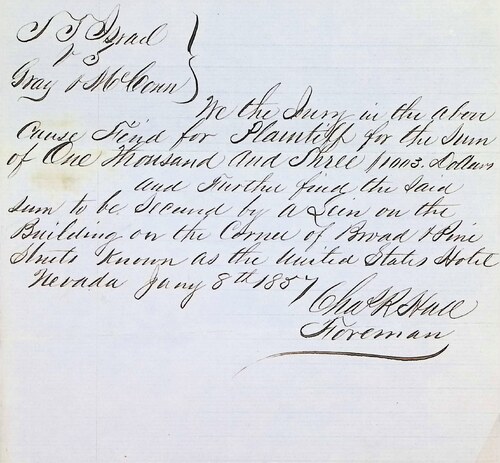 S T Israel
vs
Gray & McConn
We the Jury in the above
Cause Find for Plaintiff for the Sum
of One Thousand and Three $1003. Dollars
and Further find the said
sum to be Secured by a Lein on the
Building on the Corner of Broad & Pine
Streets Known as the United States Hotel
Nevada Jany 8th 1857
Chas R Hall
Foreman